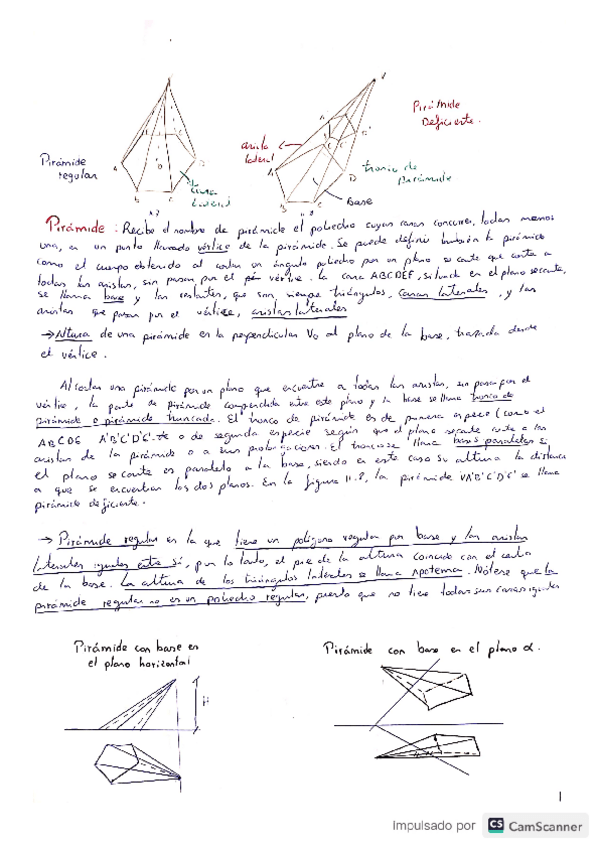 Pirámide
Deficiente.
arista
lateral
Pirámide
regular
tronco de
Pirámide
cara
lateral
Base
Pirámide: Recibe el nombre de pirámide el poliedro cuyas caras concurren, todas menos
una, en un punto llamado vértice de la pirámide. Se puede definir también la pirámide
como el cuerpo obtenido al cortar un ángulo poliedro por un plano secante que corta a
todas las aristas, sin pasar por el vértice. La cara ABCDEF, situada en el plano secante,
se llama base y las restantes, que son siempre triángulos, caras laterales, y las
aristas que pasan por el vértice, aristas laterales
→ Altura de una pirámide es la perpendicular Vo al plano de la base, trazada desde
el vértice.
Al cortar una pirámide por un plano que encuentre a todas las aristas, sin pasar por el
vértice, la parte de pirámide comprendida entre este plano y la base se llama tronco de
pirámide o pirámide truncada. El tronco de pirámide es de primera especie (como el
ABCDE A'B'C'D'E' o de segunda especie según que el plano secante corte a las
aristas de la pirámide o a sus prolongaciones. El tronco se llama bases paralelas si
el plano secante es paralelo a la base, siendo en este caso su altura la distancia
a que se encuentran los dos planos. En la figura 11.8, la pirámide VA'B'C'D'E' se llama
pirámide deficiente.
→ Pirámide regular es la que tiene un polígono regular por base y las aristas
laterales iguales entre sí, por lo tanto, el pie de la altura coincide con el centro
de la base. La altura de los triángulos laterales se llama Apotema. Nótese que la
pirámide regular no es un poliedro regular, puesto que no tiene todas sus caras iguales
Pirámide con base en
el plano horizontal
Pirámide con base en el plano α.
H
1
Impulsado por CS CamScanner